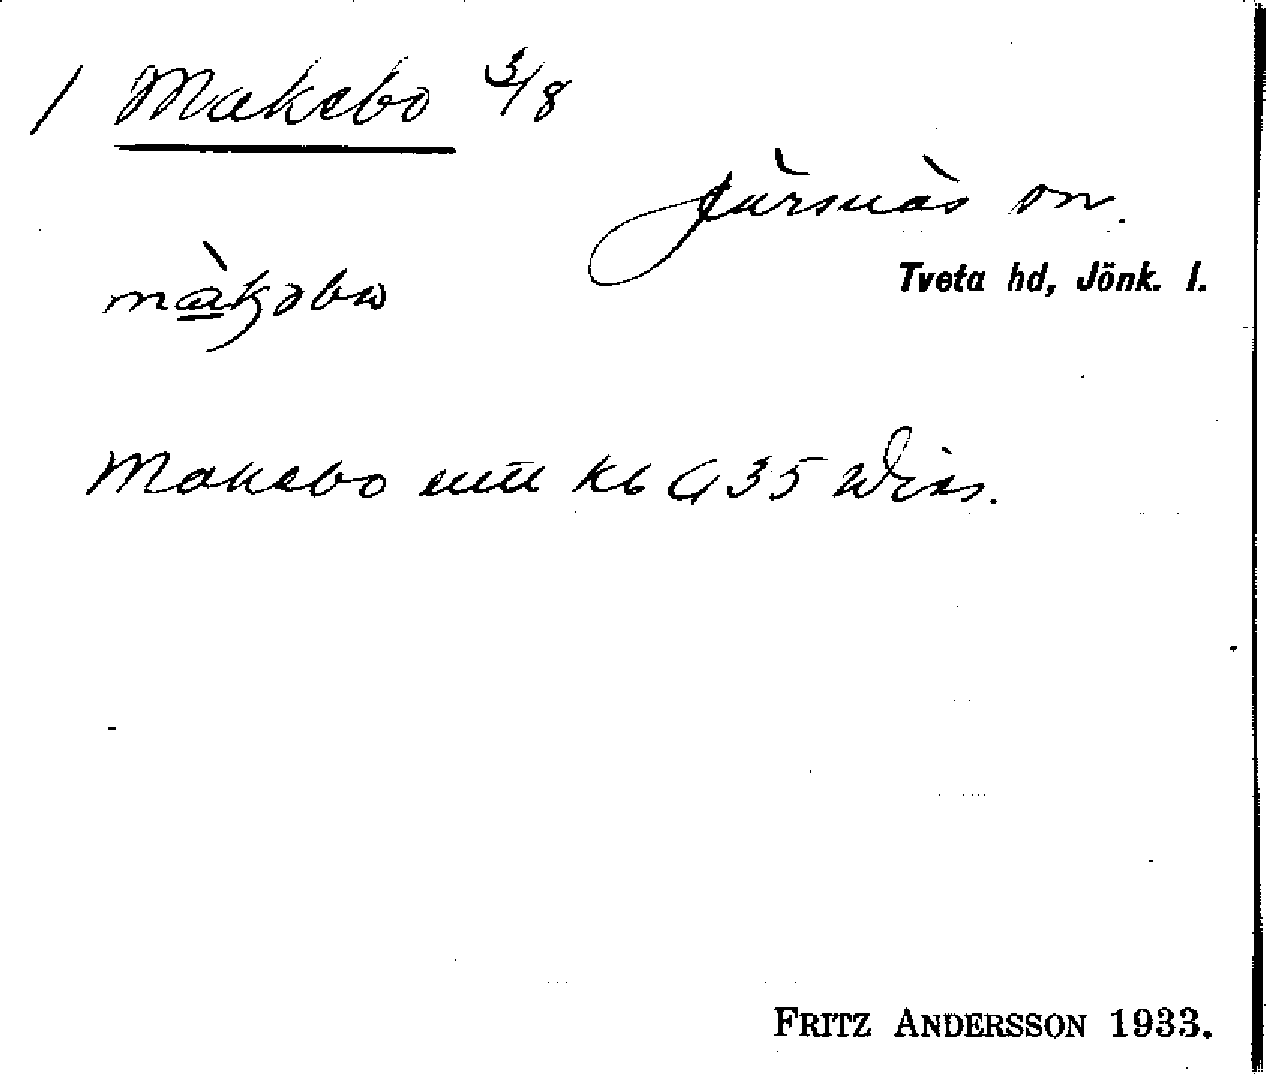 1 Makebo 3/8
Järsnäs sn.
Tveta hd, Jönk. l.
màkəbω
Makebo enl kb G 35
FRITZ ANDERSSON 1933.